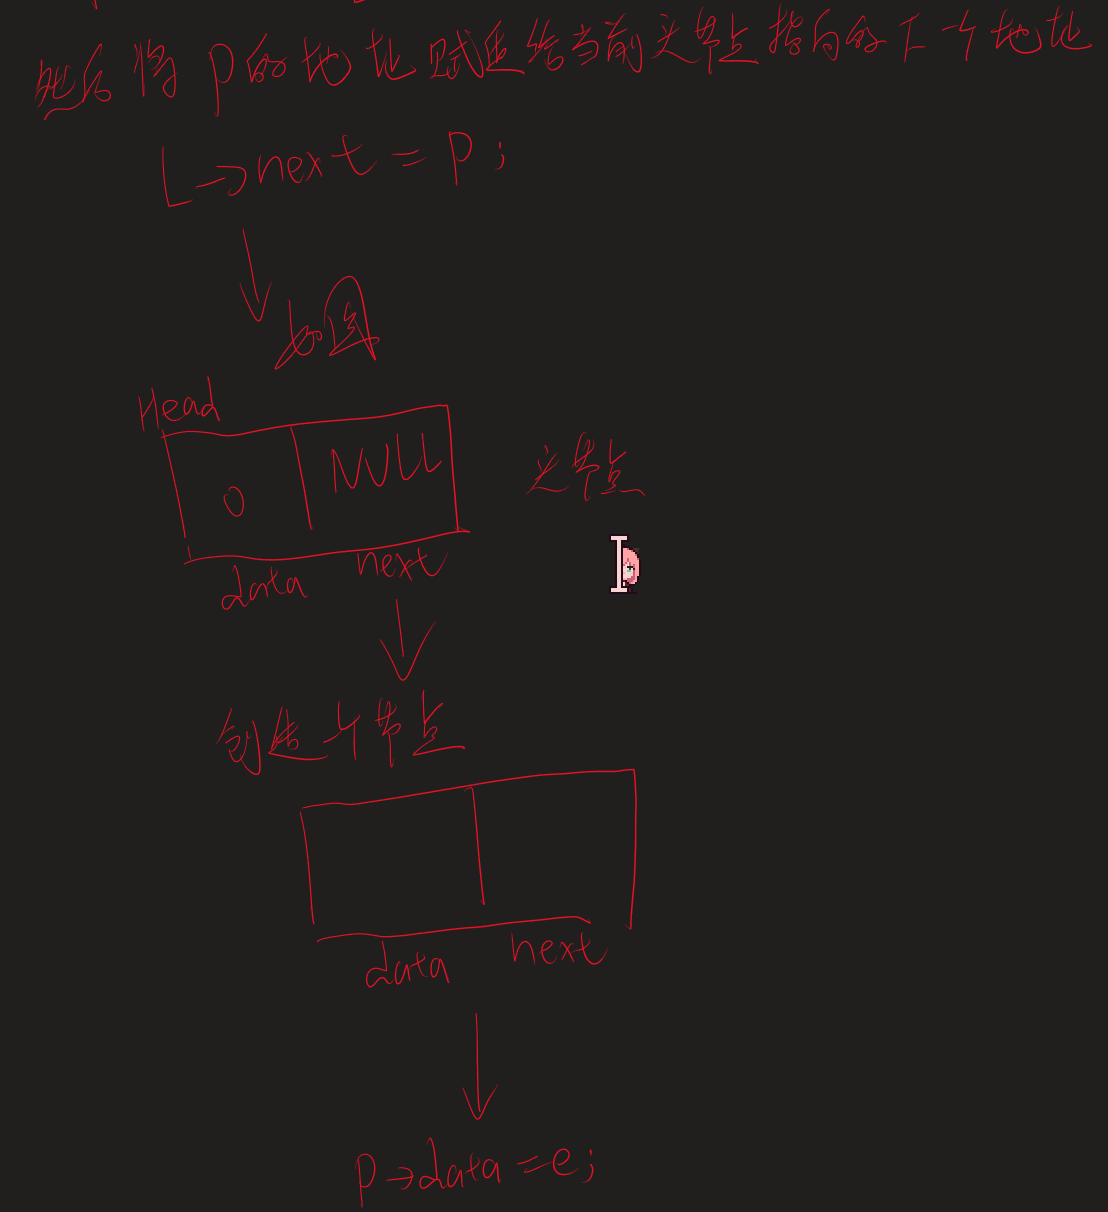 然后将p的地址赋还给当前头节点指向的下个地址
L->next=p;
如图
Head
0 NULL
头节点
data next
创建个节点
data next
p->data=e;